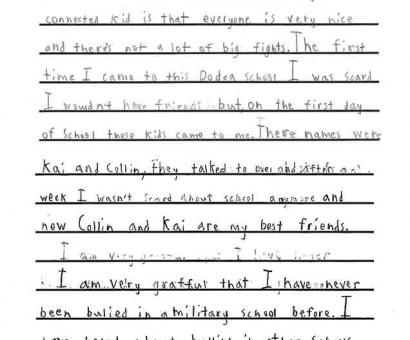 connected kid is that everyone is very nice
and there's not a lot of big fights. The first
time I came to this Dodea school I was scard
I wouldn't have friends but, on the first day
of School these kids came to me. There names were
Kai and Collin, they talked to
week I wasn't scard about school anymore and
now Collin and Kai are my best friends.
I am very I love never
I am very gratful that I have never
been bulied in a military school before. I